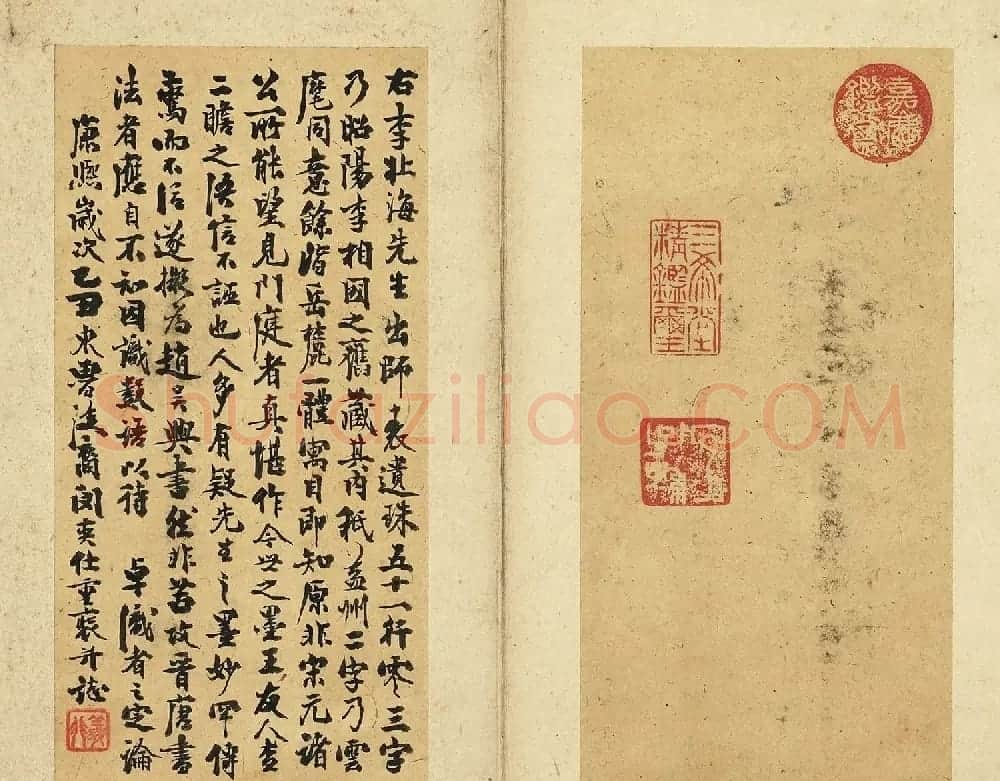 右李北海先生出師表遺珠五十一行零三字
乃昭陽李相國之舊藏其內祇益州二字乃雲
麾同意餘皆岳麓一體寓目即知原非宋元諸
公所能望見門庭者真堪作今世之墨王友人查
二瞻之語信不誣也人多有疑先生之墨妙罕傳
焉而不信遂擬為趙吳興書然非苦攻晉唐書
法者應自不知因識數語以待 卓識者之定論
康熙歲次乙丑東魯法裔閔奕仕重裝并誌
嘉慶鑑賞
三希堂
精鑑璽
Shufaziliao.COM